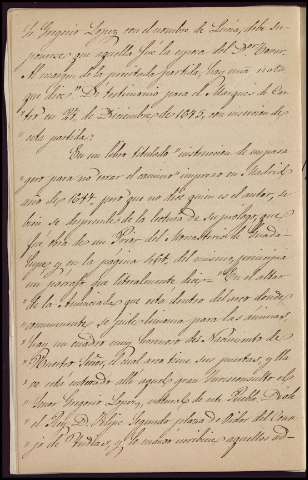 D. Gregorio Lopez con el nombre de Lucia, debe su-
ponerse que aquella fué la esposa del Dor. Tovar.
Al margen de la precitada partida, hay una nota
que dice: "Di testimonio para el Marques de Cas-
tro en 24 de Diciembre de 1645, con insercion de
esta partida.
En un libro titulado "instruccion de un pasa
gero para no errar el camino" impreso en Madrid
año de 1697, pero que no dice quien es el autor, si
bien se desprende de la lectura de su prologo, que
fué obra de un Prior del Monasterio de Guada-
lupe, y en la página 464, del mismo, principia
un parrafo que literalmente dice: "En el altar
"de la Anunciada que está dentro del arco donde
"comunmente se pide limosna para las animas,
"hay un cuadro muy famoso del Nacimiento de
"Nuestro Señor, el cual arco tiene sus puertas, y alli
"se está enterrado alli aquel gran Jurisconsulto el
"Señor Gregorio Lopez, natural de este Pueblo. Diole
"el Rey D. Felipe Segundo plaza de Oidor del Conse
"jo de Yndias, y le mandó escribiese aquellos ad-